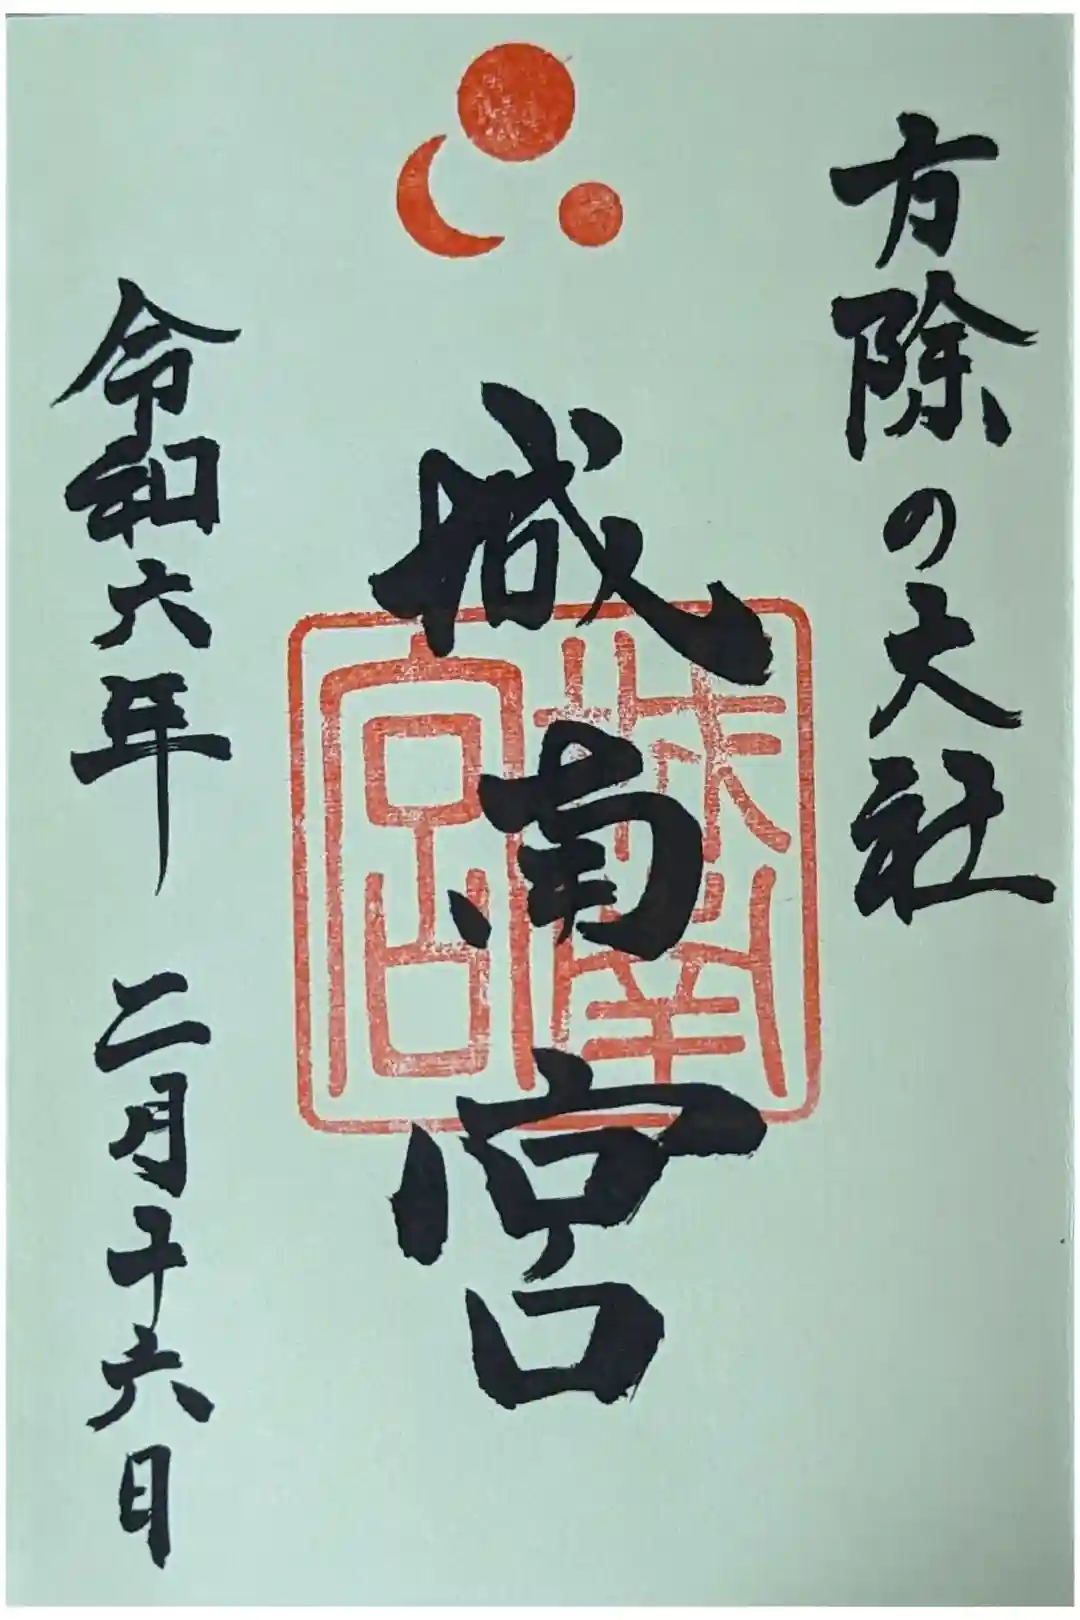 方除の大社
城南宮
令和六年 二月十六日